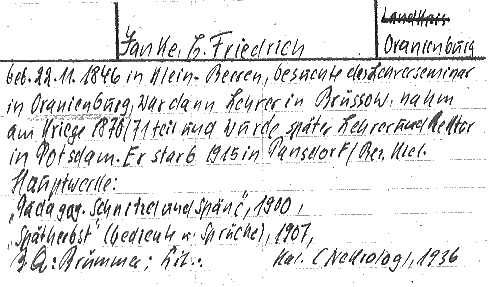 Landkreis
Janke, E. Friedrich Oranienburg
geb. 22.11.1846 in Klein-Beeren, besuchte das Lehrerseminar
in Oranienburg, war dann Lehrer in Brüssow, nahm
am Kriege 1870/71 teil und wurde später Lehrer und Rektor
in Potsdam. Er starb 1915 in Pansdorf/Bez. Kiel.
Hauptwerke:
„Pädagog. Schnitzel und Späne“, 1900,
„Spätherbst“ (Gedichte u. Sprüche), 1907,
Qu: Brümmer; Lit.: Kal. (Nekrolog), 1936